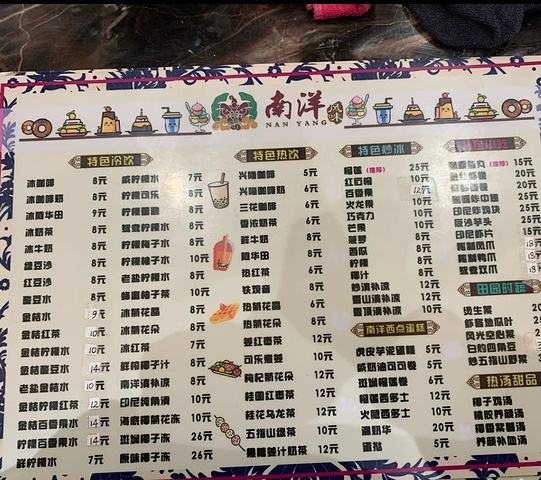 南洋
NAN YANG
特色冷饮
冰咖啡 8元
冰咖啡奶 8元
冰阿华田 9元
冰奶茶 8元
冰牛奶 8元
绿豆沙 8元
红豆沙 8元
酸豆水 8元
金桔水 9元
金桔红茶 10元
金桔柠檬水 10元
金桔酸豆水 14元
老盐金桔水 10元
金桔柠檬红茶 12元
金桔百香果水 14元
柠檬百香果水 14元
鲜柠檬水 7元
咸柠檬水 7元
柠檬可乐 8元
柠檬雪碧 8元
鸳鸯柠檬水 8元
柠檬柚子水 8元
柠檬柚子水 10元
老盐柠檬水 8元
蜂蜜柚子茶 10元
冰菊花晶 8元
冰菊花朵 8元
冰红茶 7元
鲜榨椰子汁 8元
南洋清补凉 8元
印尼炖角滴 10元
海底椰菊花冻 10元
斑斓椰子冻 26元
原味椰子冻 26元
特色热饮
兴隆咖啡 5元
兴隆咖啡奶 6元
三花咖啡 6元
香浓奶茶 6元
鲜牛奶 8元
阿华田 8元
热红茶 6元
铁观音 8元
热菊花晶 6元
热菊花朵 8元
姜红枣茶 12元
可乐煮姜 10元
枸杞菊花朵 12元
桂圆红枣茶 12元
桂花乌龙茶 12元
五指山绿茶 10元
黑糖姜汁奶茶 12元
特色炒冰
榴莲(推荐) 25元
红石榴 10元
百香果 12元
火龙果 10元
巧克力 10元
芒果 10元
菠萝 8元
西瓜 8元
柠檬 8元
椰汁 8元
炒清补凉 12元
雪山清补凉 12元
屋顶清补凉 10元
南洋西点蛋糕
虎皮芋泥蛋糕 5元
咸奶油可可卷 5元
斑斓榴莲卷 6元
榴莲西多士 12元
火腿西多士 10元
温奶华 20元
蛋挞 5元
特色小吃
15元
20元
20元
25元
15元
阪沙芋头 15元
印尼虾片 15元
田园时蔬
烫生菜
虾酱地瓜叶
风光空心菜
白灼四角豆
炒五指山野菜
热汤甜品
椰子鸡汤
桃胶养颜汤
椰香浆薯汤
养颜补血汤